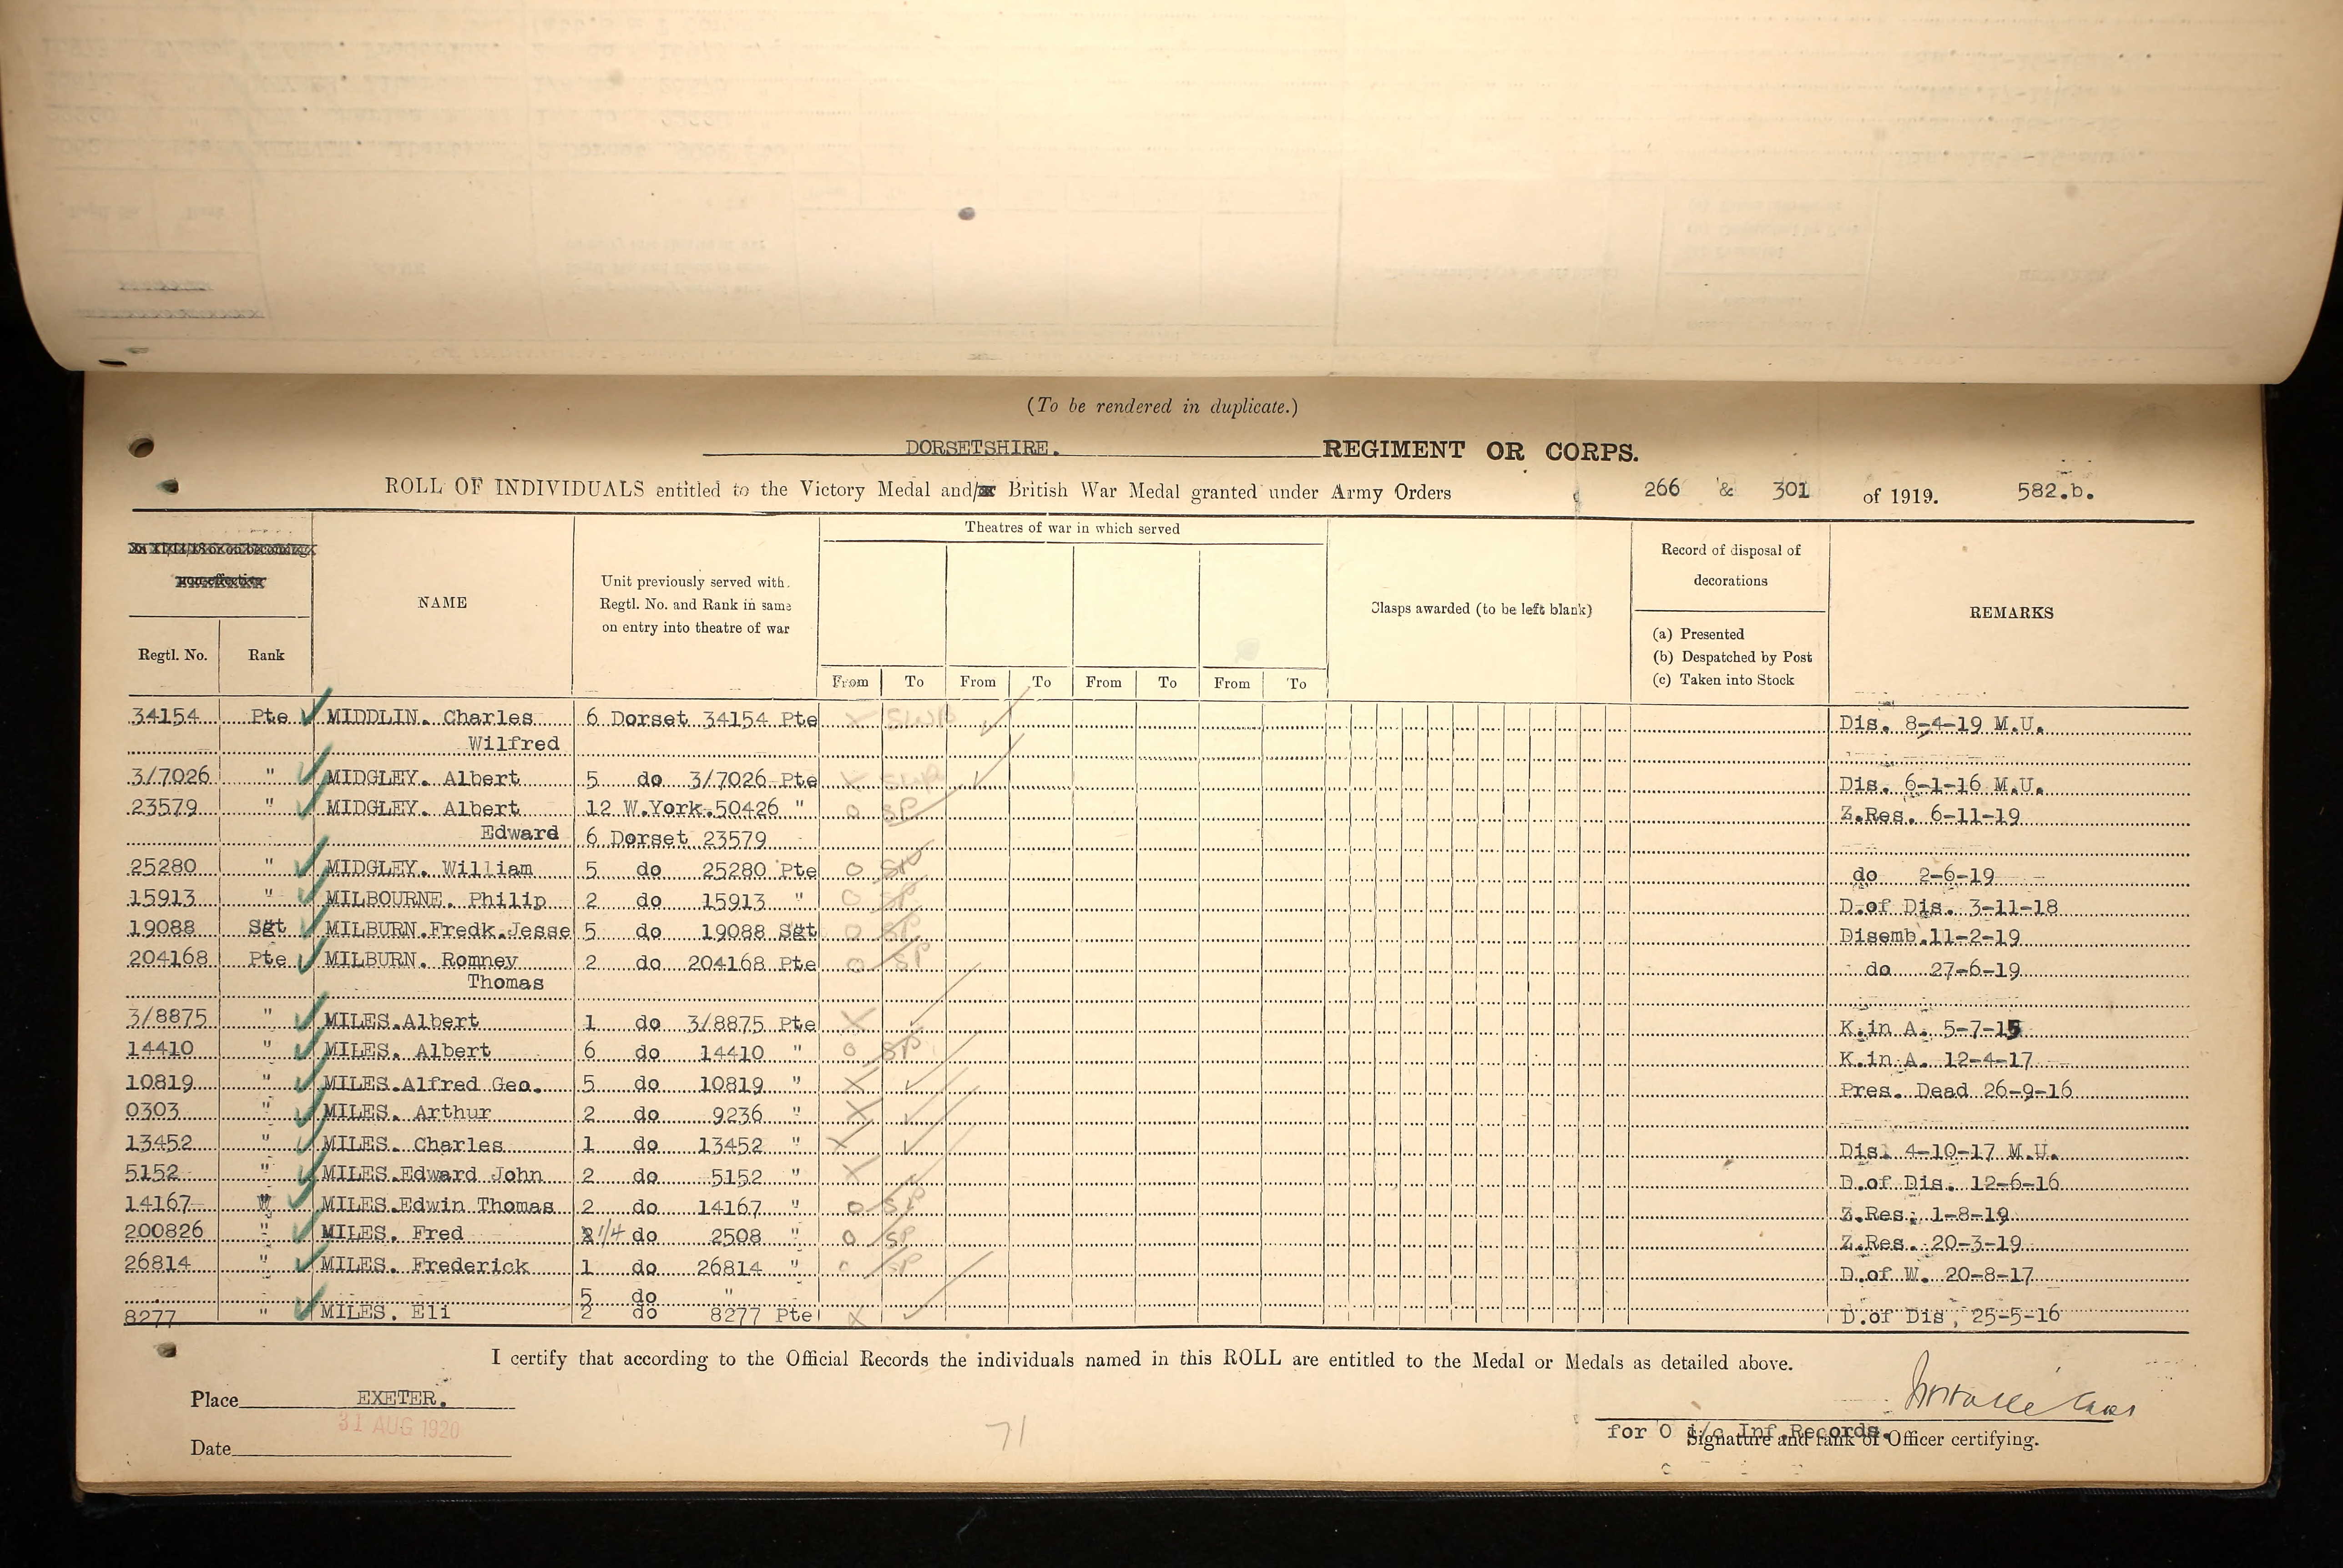 (To be rendered in duplicate.)
DORSETSHIRE. REGIMENT OR CORPS.
ROLL OF INDIVIDUALS entitled to the Victory Medal and/or British War Medal granted under Army Orders 266 & 301 of 1919. 582.b.
Theatres of war in which served
Record of disposal of
decorations
Unit previously served with.
Regtl. No. and Rank in same
on entry into theatre of war
NAME
Clasps awarded (to be left blank)
REMARKS
(a) Presented
(b) Despatched by Post
(c) Taken into Stock
Regtl. No. Rank
From To From To From To From To
34154 Pte MIDDLIN. Charles 6 Dorset 34154 Pte X SWB Dis. 8-4-19 M.U.
Wilfred
3/7026 " MIDGLEY. Albert 5 do 3/7026 Pte X SWB Dis. 6-1-16 M.U.
23579 " MIDGLEY. Albert 12 W.York.50426 " O SP Z.Res. 6-11-19
Edward 6 Dorset 23579
25280 " MIDGLEY. William 5 do 25280 Pte O SP do 2-6-19
15913 " MILBOURNE. Philip 2 do 15913 " O SP D.of Dis. 3-11-18
19088 Sgt MILBURN.Fredk.Jesse 5 do 19088 Sgt O SP Disemb.11-2-19
204168 Pte MILBURN. Romney 2 do 204168 Pte O SP do 27-6-19
Thomas
3/8875 " MILES.Albert 1 do 3/8875 Pte X K.in A. 5-7-15
14410 " MILES. Albert 6 do 14410 " O SP K.in A. 12-4-17
10819 " MILES.Alfred Geo. 5 do 10819 " X Pres. Dead 26-9-16
0303 " MILES. Arthur 2 do 9236 " X
13452 " MILES. Charles 1 do 13452 " X Dis. 4-10-17 M.U.
5152 " MILES.Edward John 2 do 5152 " X D.of Dis. 12-6-16
14167 " MILES.Edwin Thomas 2 do 14167 " O SP Z.Res. 1-8-19
200826 " MILES. Fred 1/4 do 2508 " O SP Z.Res. 20-3-19
26814 " MILES. Frederick 1 do 26814 " O SP D.of W. 20-8-17
5 do "
8277 " MILES. Eli 2 do 8277 Pte X D.of Dis, 25-5-16
I certify that according to the Official Records the individuals named in this ROLL are entitled to the Medal or Medals as detailed above.
Place EXETER.
31 AUG 1920
Date
71
for O i/c Inf.Records.
Signature and rank of Officer certifying.